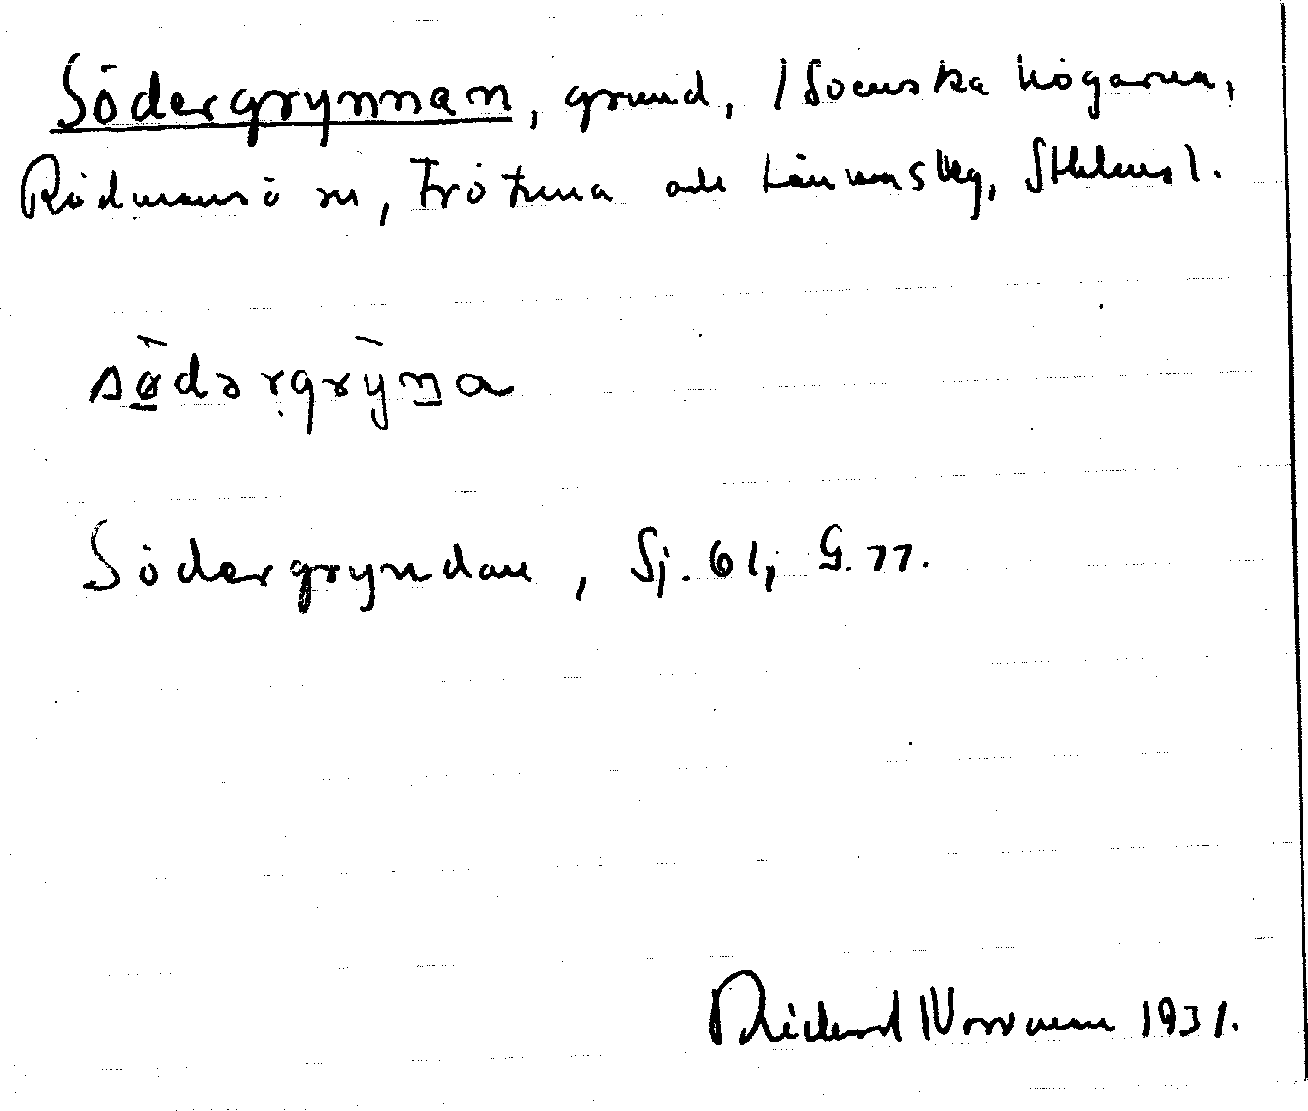 Södergrynnan, grund, / Svenska högarna,
Rådmansö sn, Frötuna och Länna skg, Sthlms l.
sødərgryna
Södergryndan, Sj. 61, G. 77.
Rickard Norrman 1931.